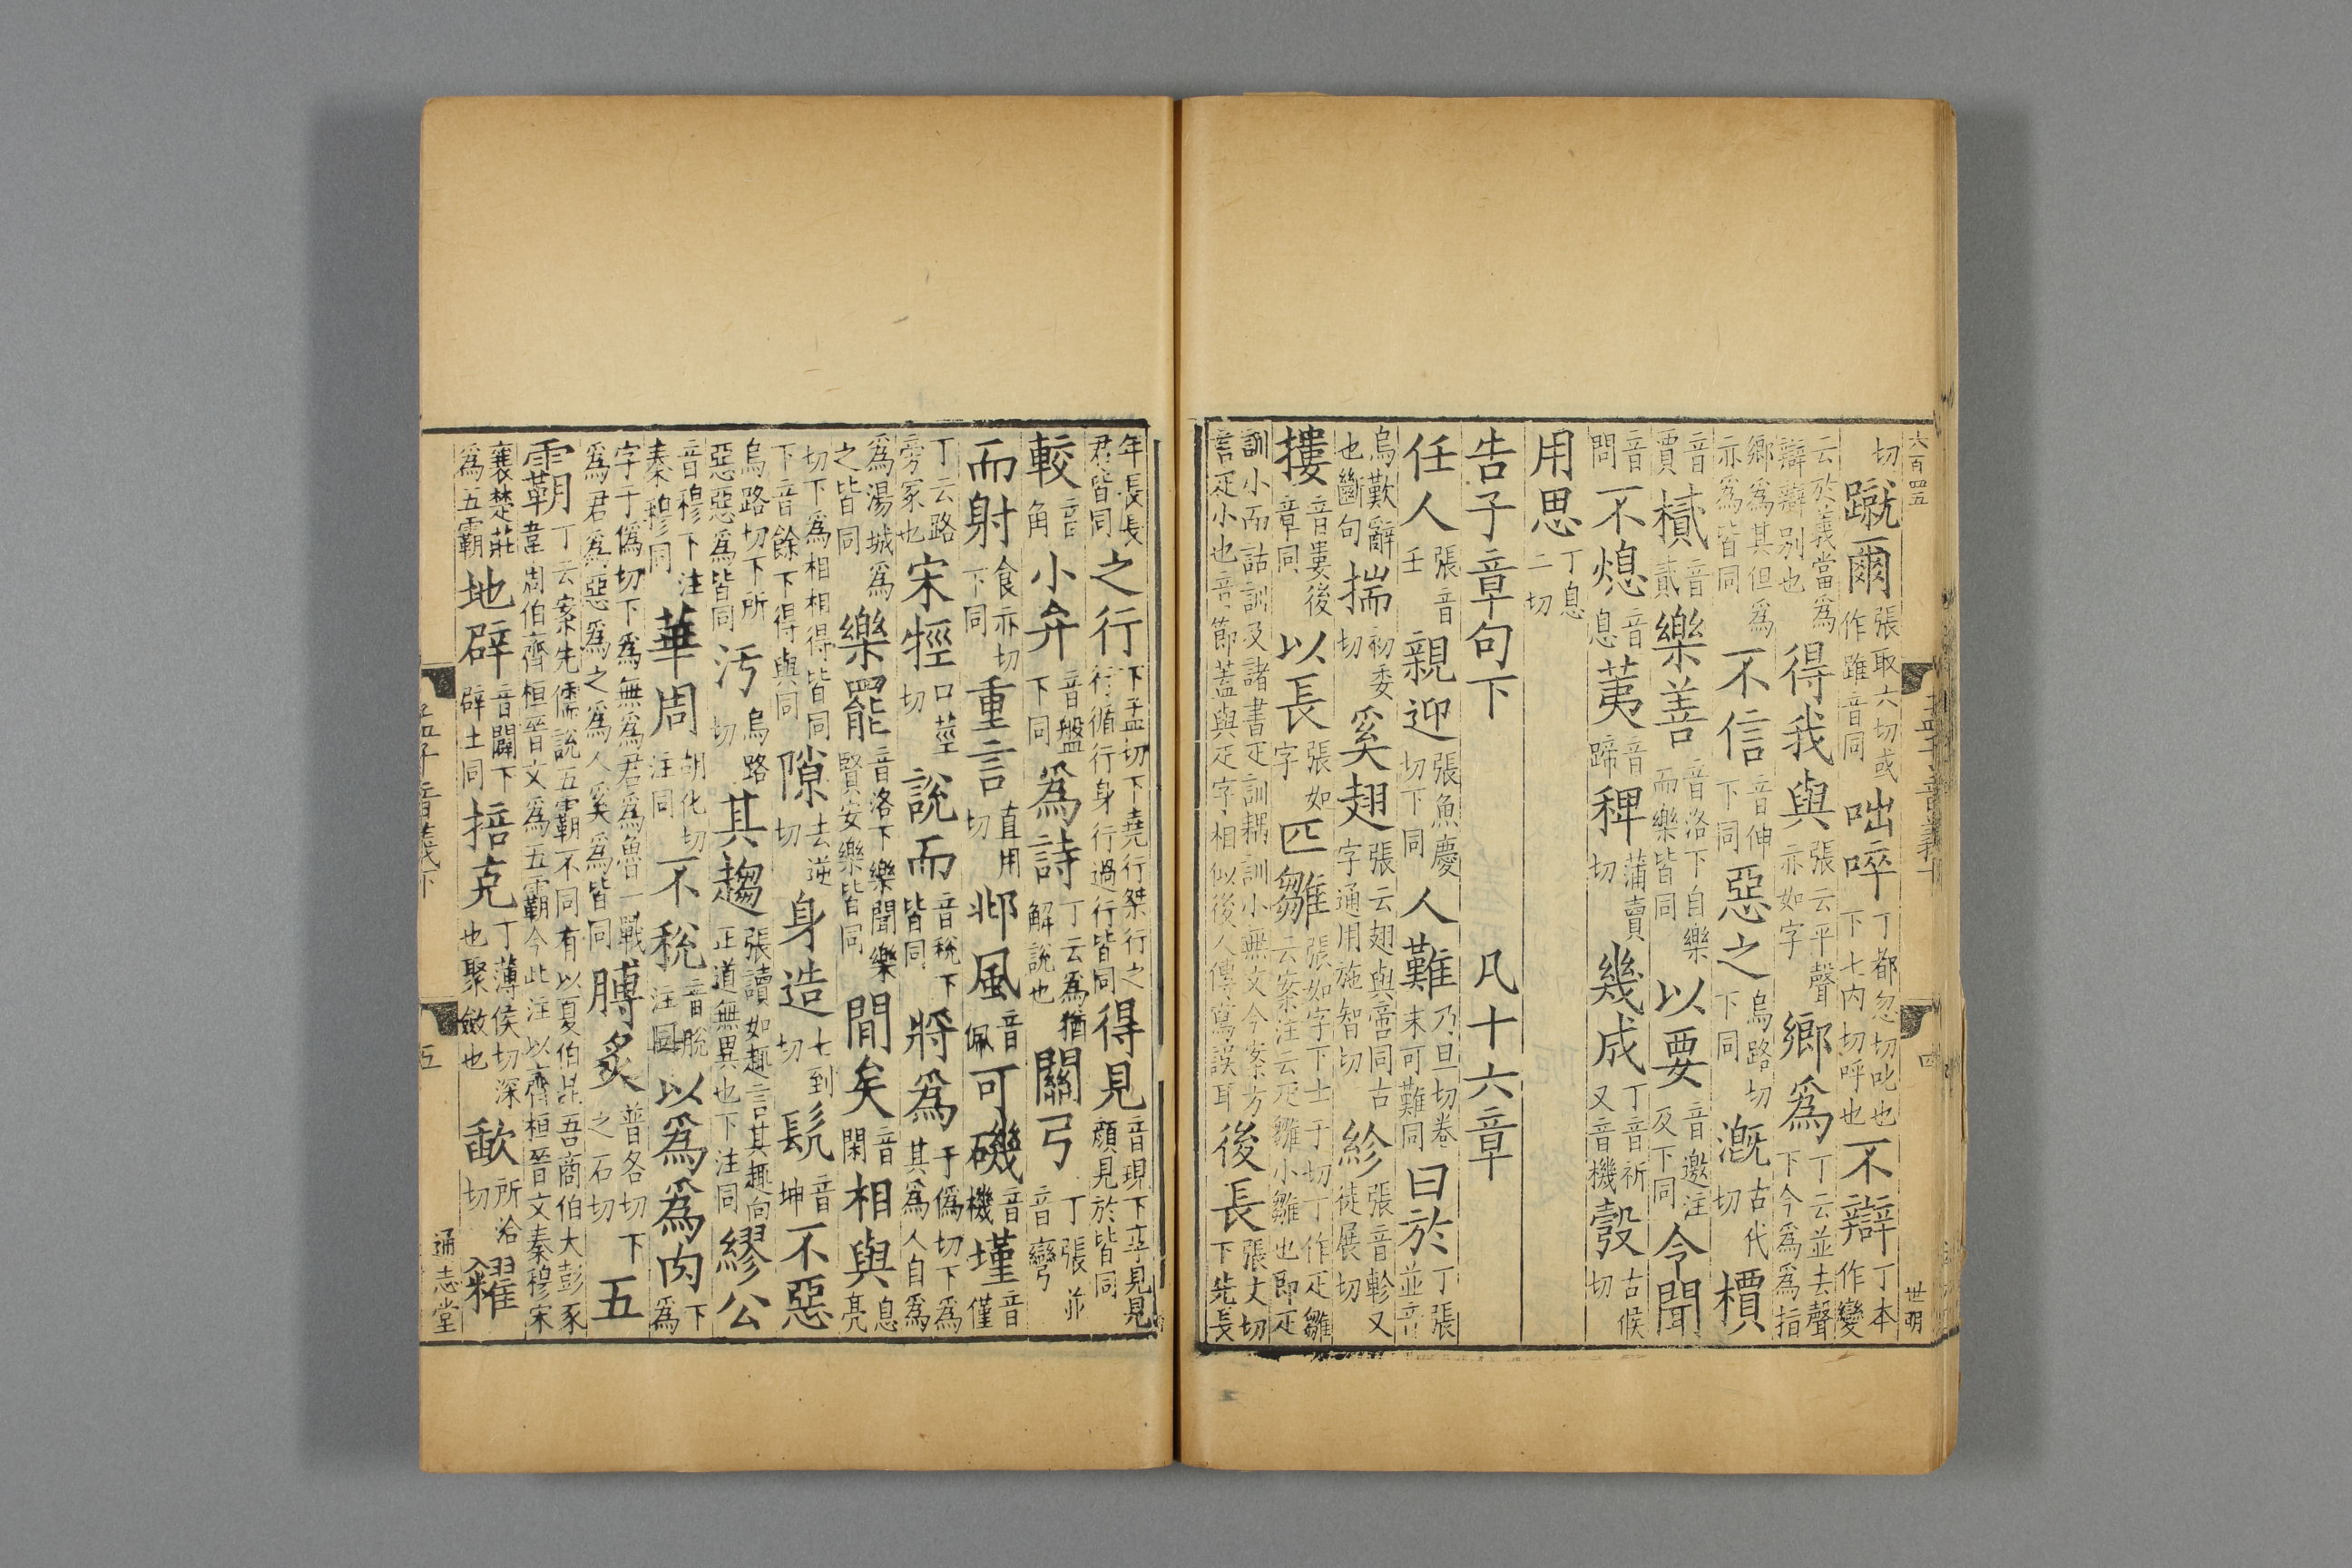 六百四五
孟子音義下
四
世明
切蹴爾張取六切或作踧音同咄啐丁都忽切叱也下七內切呼也不辯丁本作變
云於義當爲辯辯別也得我與張云平聲亦如字鄉爲丁云並去聲下今爲爲指
鄉爲其但爲亦爲皆同不信音伸下同惡之烏路切下同漑古代切檟
音賈樲音貳樂善音洛下自樂而樂皆同以要音邀注及下同令聞
音問不熄音息荑音蹄稗蒲賣切幾成丁音祈又音機彀古候切
用思丁息二切
告子章句下 凡十六章
任人張音壬親迎張魚慶切下同人難乃旦切卷末可難同曰於丁張並音
烏歎辭也斷句揣初委切奚翅張云翅與啻同古字通用施智切紾張音軫又徒展切
摟音婁後章同以長張如字匹雛張如字下士于切丁作疋雛云案注云疋雛小雛也即疋
訓小而詁訓及諸書疋訓耦訓小無文今案方言疋小也音節蓋與疋字相似後人傳寫誤耳後長張丈切下先長
年長長君皆同之行下孟切下堯行桀行之行循行身行過行皆同得見音現下至見見顔見於皆同
較音角小弁音盤下同爲詩丁云爲猶解說也關弓丁張並音彎
而射食亦切下同重言直用切邶風音佩可磯音機墐音僅
丁云路旁冢也宋牼口莖切說而音稅下皆同將爲于僞切下爲其爲人自爲
爲湯城爲之皆同樂罷音洛下樂聞樂賢安樂皆同間矣音閑相與息亮
切下爲相相得皆同下音餘下得與同隙去逆切身造七到切髡音坤不惡
烏路切下所惡惡爲皆同汚烏路切其趨張讀如趣言其趣向正道無異也下注同繆公
音穆下注秦穆同華周胡化切注同不稅音脫注圖以爲爲肉下爲
字于僞切下爲無爲君爲魯一戰爲君爲惡爲之爲人奚爲皆同膊炙普各切下之石切五
霸丁云案先儒說五霸不同有以夏伯昆吾商伯大彭豕韋周伯齊桓晉文爲五霸今此注以齊桓晉文秦穆宋
襄楚莊爲五霸地辟音闢下辟土同掊克丁薄侯切深也聚斂也歃所洽切糴
孟子音義下
五
通志堂